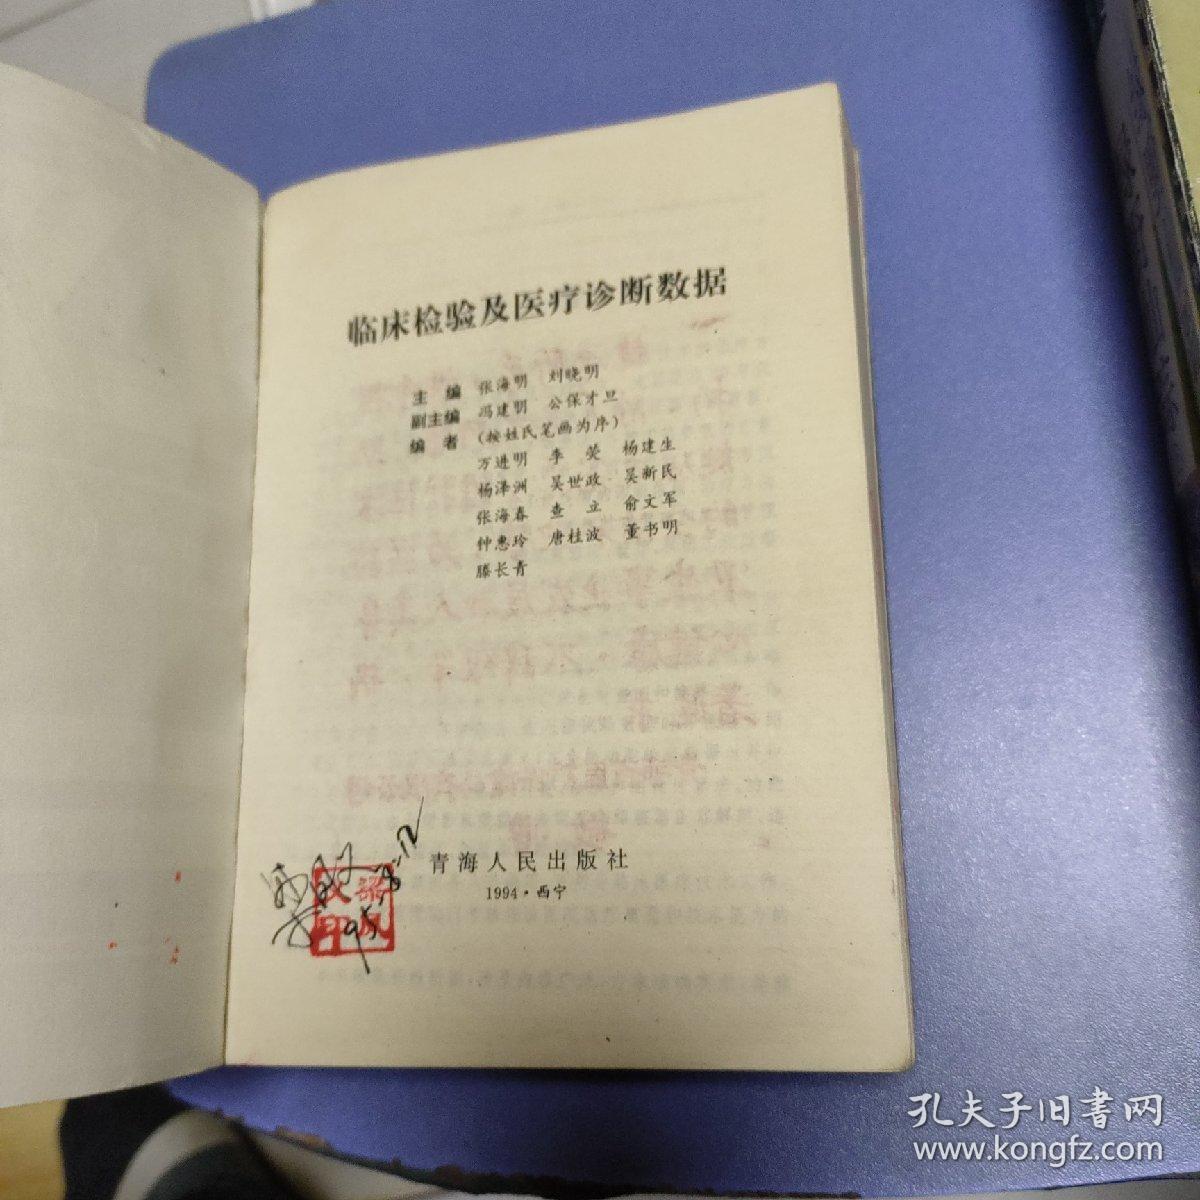 临床检验及医疗诊断数据
主 编 张海明 刘晓明
副主编 冯建明 公保才旦
编 者 (按姓氏笔画为序)
万进明 李 荧 杨建生
杨泽洲 吴世政 吴新民
张海春 查 立 俞文军
钟惠玲 唐桂波 董书明
滕长青
青海人民出版社
1994·西宁
孔夫子旧书网
www.kongfz.com